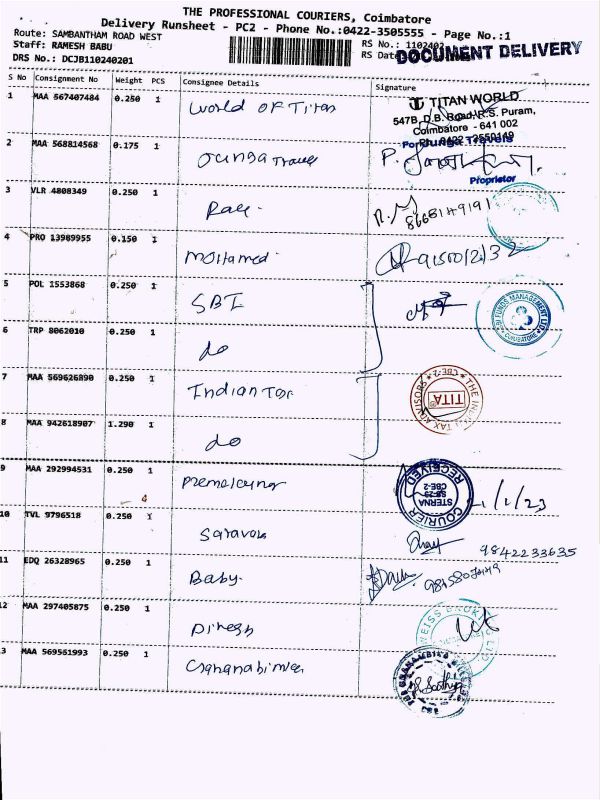 THE PROFESSIONAL COURIERS, Coimbatore
Delivery Runsheet - PC2 - Phone No.:0422-3505555 - Page No.:1
Route: SAMBANTHAM ROAD WEST
Staff: RAMESH BABU
DRS No.: DCJB110240201
RS No.: 1102402
RS Dat
DOCUMENT DELIVERY
S No Consignment No Weight PCS Consignee Details Signature
1 MAA 567407484 0.250 1 World OF Titan
TITAN WORLD
547B, D.B. Road, R.S. Puram,
Coimbatore - 641 002
Ph: 0422 - 2550149
2 MAA 568814568 0.175 1 Junga Travels
For Junga Travels
P.
Proprietor
3 VLR 4808349 0.250 1
4 PRO 13989955 0.150 1 Mohamed
5 POL 1553868 0.250 1 SBI
SBI FUNDS MANAGEMENT LTD
COIMBATORE
6 TRP 8062010 0.250 1 do
7 MAA 569626890 0.250 1 Indian Tax
THE INDIA TAX ADVISORS
CBE-2
TITA
8 MAA 942618907 1.290 1 do
9 MAA 292994531 0.250 1 Premalkumar
STERNA
CBE-2
COURIER
RECEIVED
4
10 TVL 9796518 0.250 1 Saravan
9842233635
11 EDQ 26328965 0.250 1 Baby
12 MAA 297405875 0.250 1 Dinesh
13 MAA 569561993 0.250 1 Gnanambika
CBE